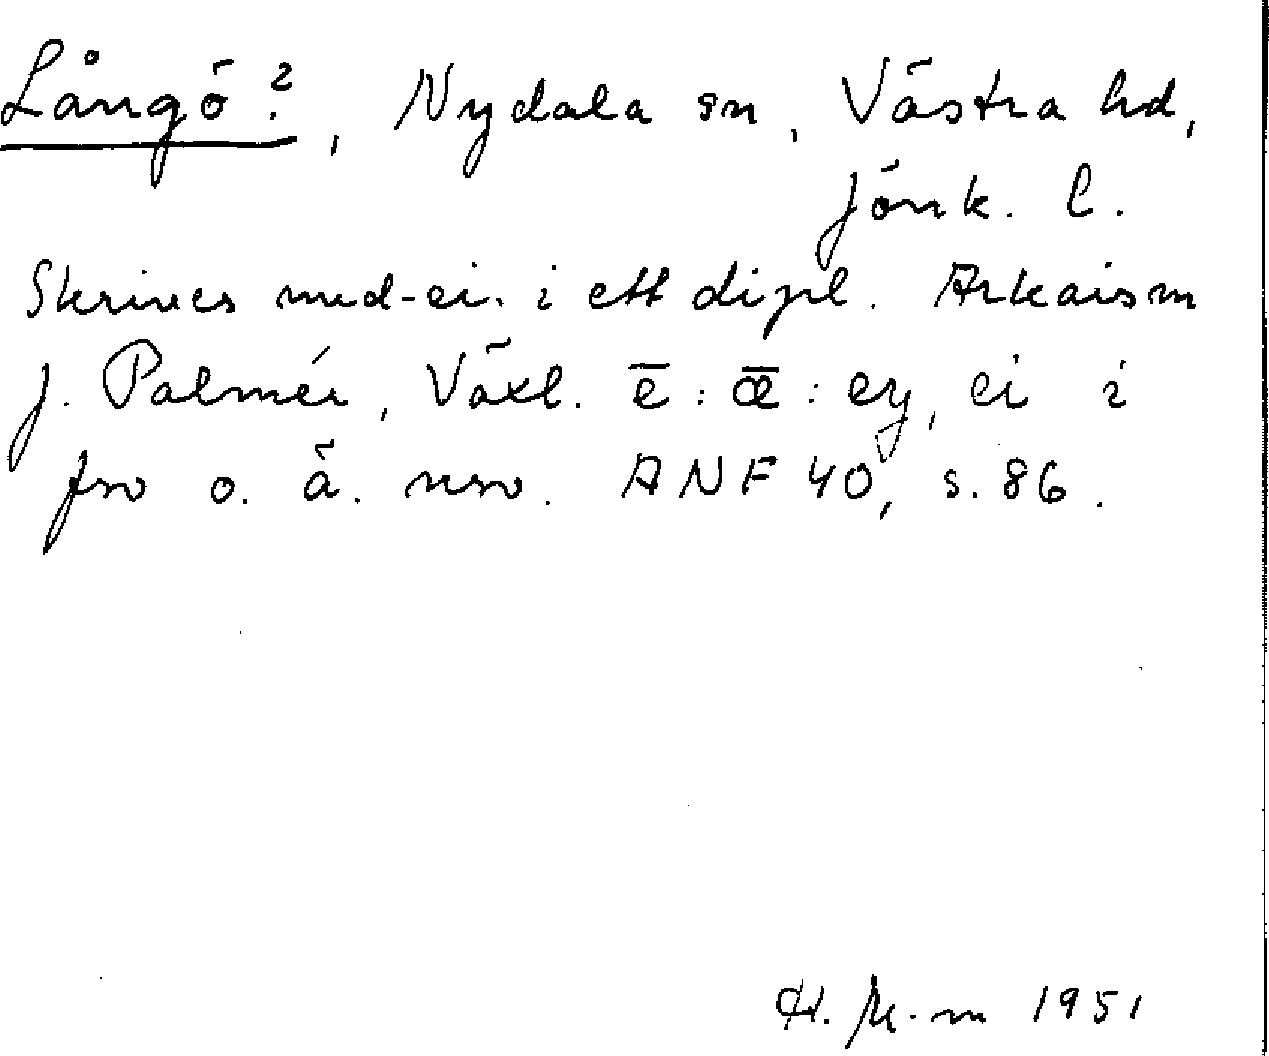 Långö?, Nydala sn, Västra hd,
Jönk. l.
Skrives med -ei- i ett dipl. Arkaism
J. Palmér, Växl. ē : œ̄ : ey, ei i
fsv o. ä. nsv. ANF 40, s. 86.
1951